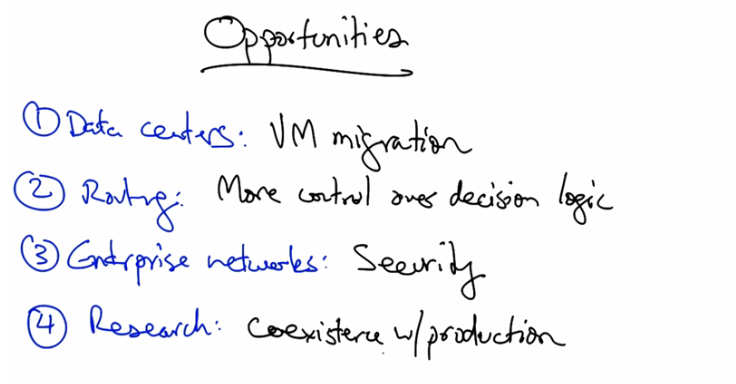 Opportunities
① Data centers: VM migration
② Routing: More control over decision logic
③ Enterprise networks: Security
④ Research: Coexistence w/production